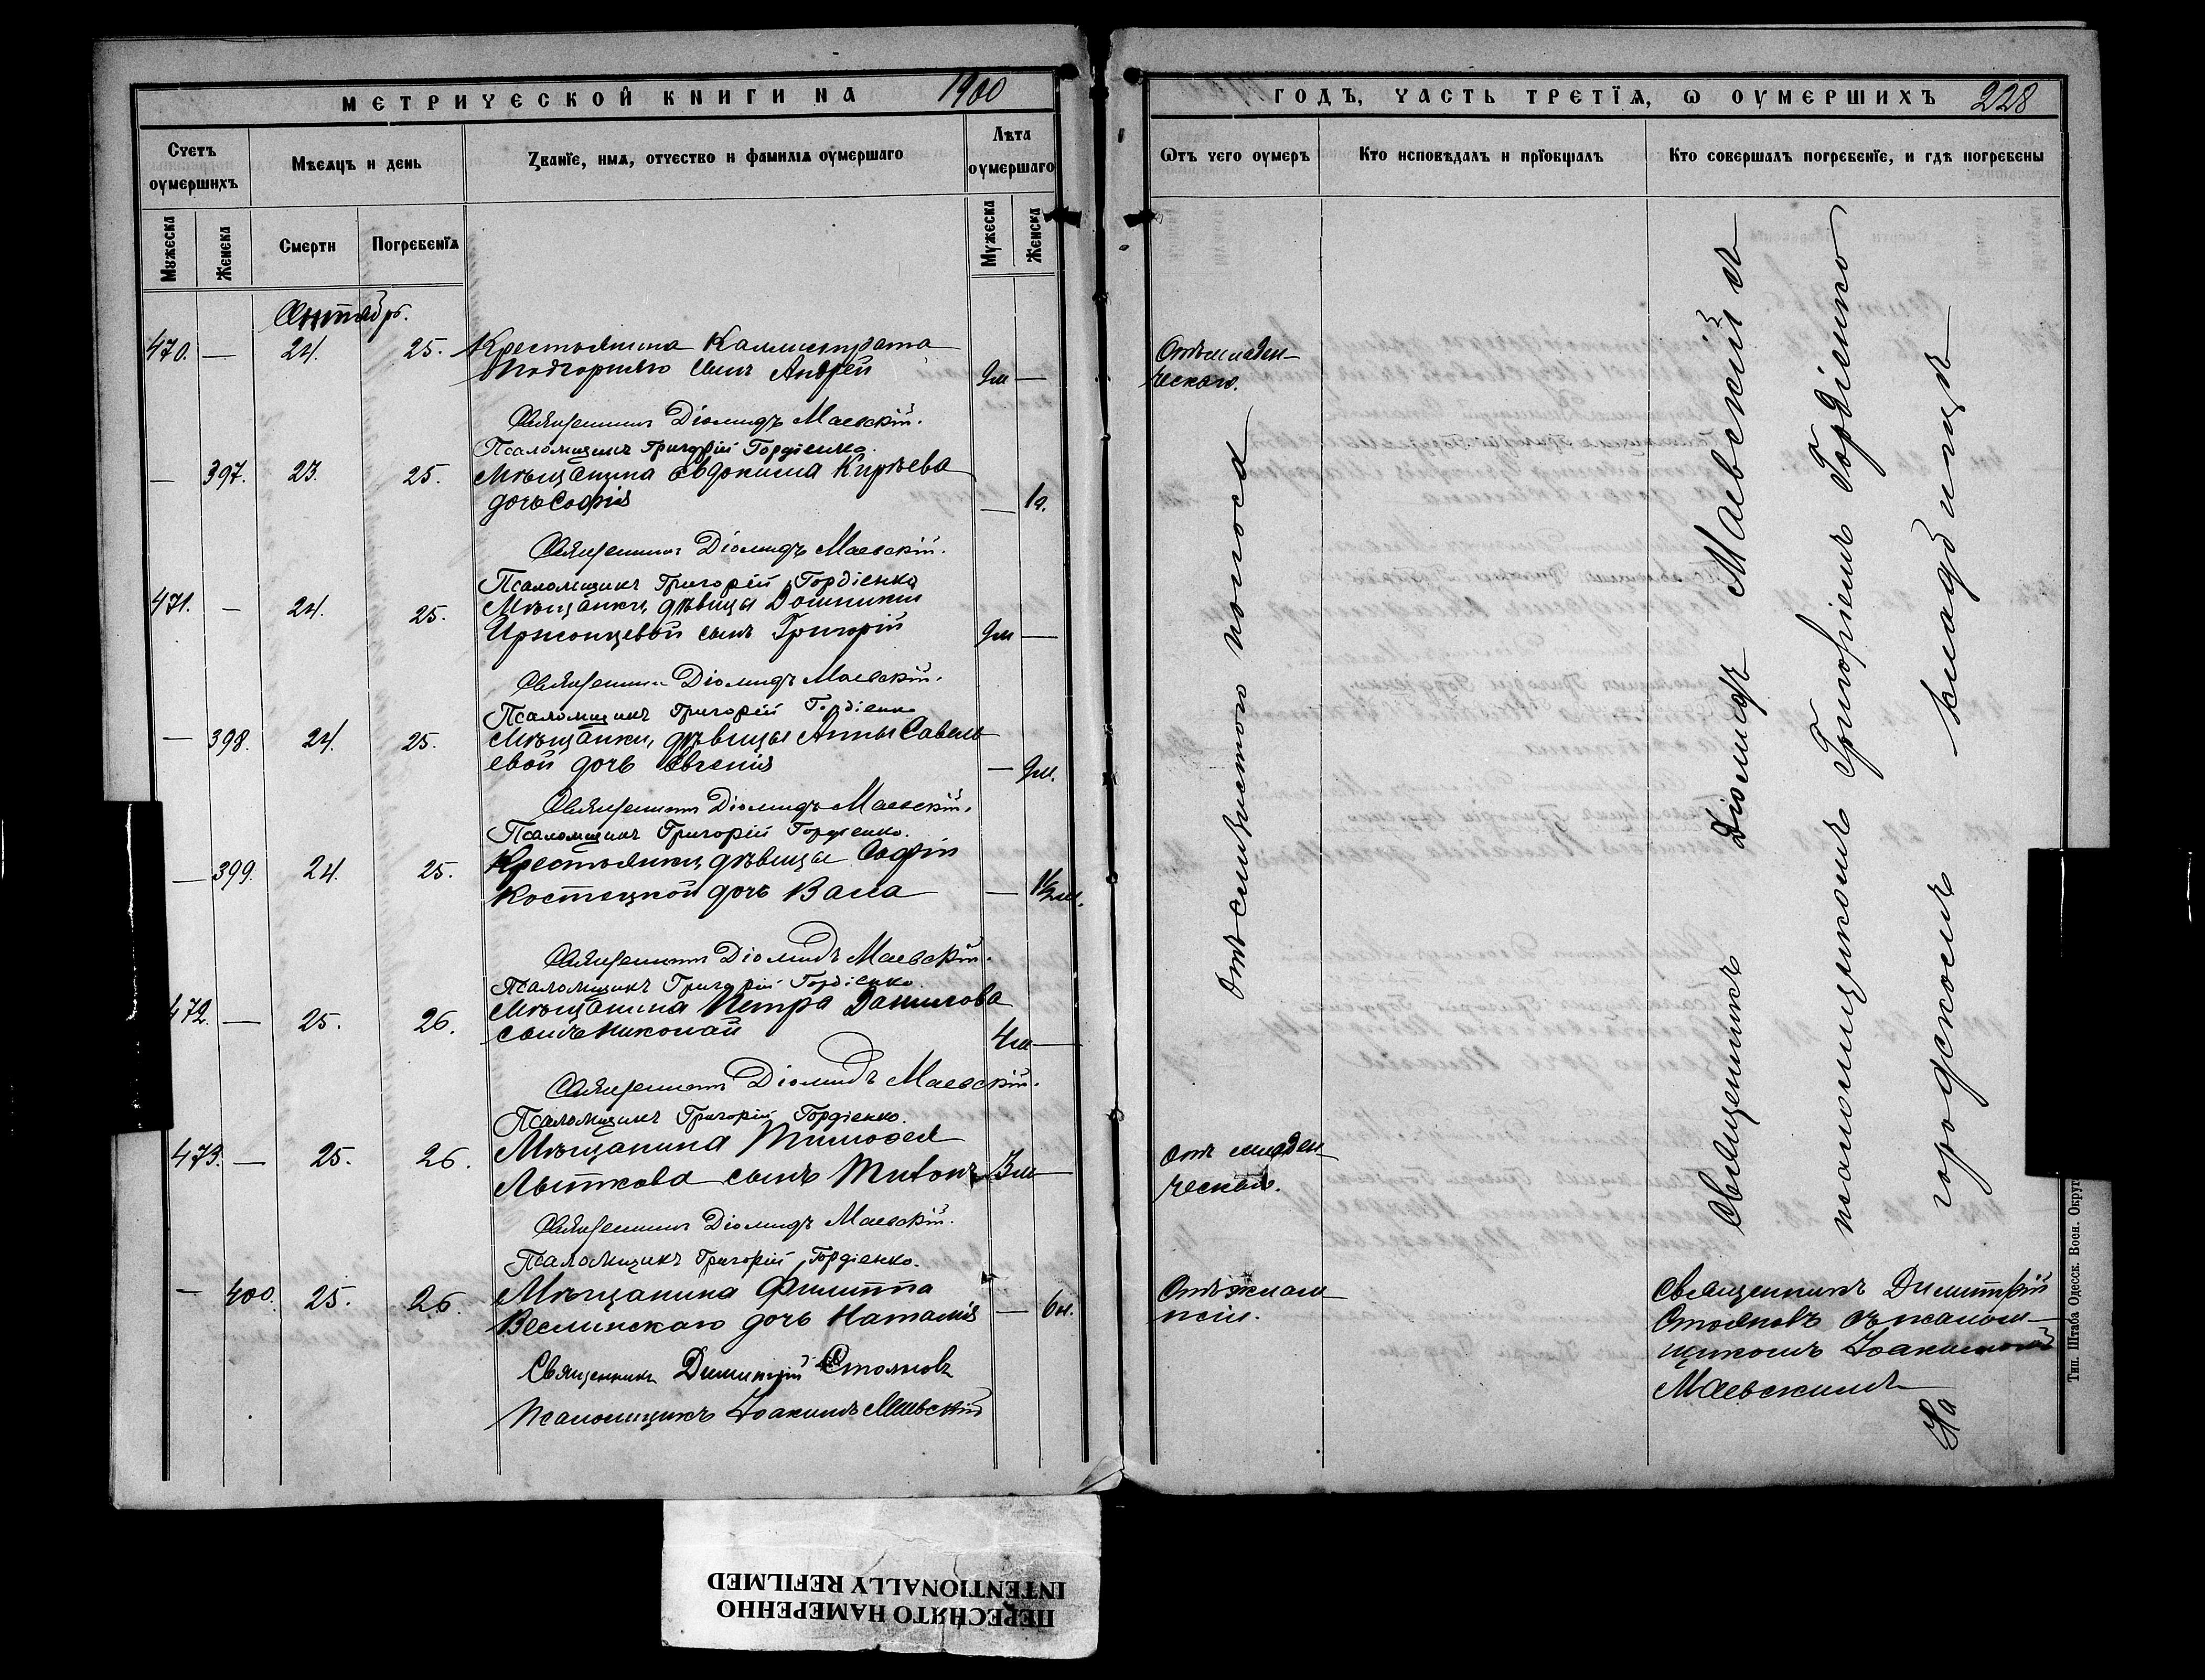 МЕТРИЧЕСКОЙ КНИГИ НА 1900
Счетъ оумершихъ
Мѣсяцъ и день
Званїе, имя, отчество и фамилїя оумершаго
Лѣта оумершаго
Мужеска
Женска
Смерти
Погребенїя
Мужеска
Женска
470. — 24. 25. Крестьянина Каллистрата
Подгорняго сынъ Андрей 9м —
Священникъ Діомидъ Маевскій.
Псаломщикъ Григорій Гордіенко.
— 397. 23. 25. Мѣщанина Евдокима Кирѣева
дочь Софія — 1г.
Священникъ Діомидъ Маевскій.
Псаломщикъ Григорій Гордіенко
471. — 24. 25. Мѣщанки, дѣвицы Домникіи
сынъ Григорій 9м —
Священникъ Діомидъ Маевскій.
Псаломщикъ Григорій Гордіенко
— 398. 24. 25. Мѣщанки, дѣвицы Анны Савель-
евой дочь Евгенія — 9м.
Священникъ Діомидъ Маевскій.
Псаломщикъ Григорій Гордіенко.
— 399. 24. 25. Крестьянки, дѣвицы Софіи
Костецкой дочь Васса — 1½м.
Священникъ Діомидъ Маевскій.
Псаломщикъ Григорій Гордіенко.
472. — 25. 26. Мѣщанина Петра Данилова
сынъ Николай 4м —
Священникъ Діомидъ Маевскій.
Псаломщикъ Григорій Гордіенко.
473. — 25. 26. Мѣщанина Тимофея
Лыткова сынъ 3м —
Священникъ Діомидъ Маевскій.
Псаломщикъ Григорій Гордіенко.
— 400. 25. 26. Мѣщанина Филиппа
Веслинскаго дочь Наталія — 6н.
Священникъ Димитрій Стояновъ
Псаломщикъ Іоакимъ Маевскій
ГОДЪ, ЧАСТЬ ТРЕТЇЯ, Ѡ ОУМЕРШИХЪ 228
Ѿтъ чего оумеръ
Кто исповѣдалъ и прїобщалъ
Кто совершалъ погребенїе, и гдѣ погребены
Отъ младен-
ческой.
Отъ слизистаго поноса
Отъ младен-
ческой.
Отъ эклам-
псіи.
Священникъ Діомидъ Маевскій и
псаломщикомъ Григоріемъ Гордіенко
На городскомъ кладбищѣ
Священникъ Димитрій
Стояновъ съ псалом-
щикомъ Іоакимомъ
Маевскимъ
Тип. Штаба Одесск. Воен. Округ
ПЕРЕСНЯТО НАМЕРЕННО
INTENTIONALLY REFILMED